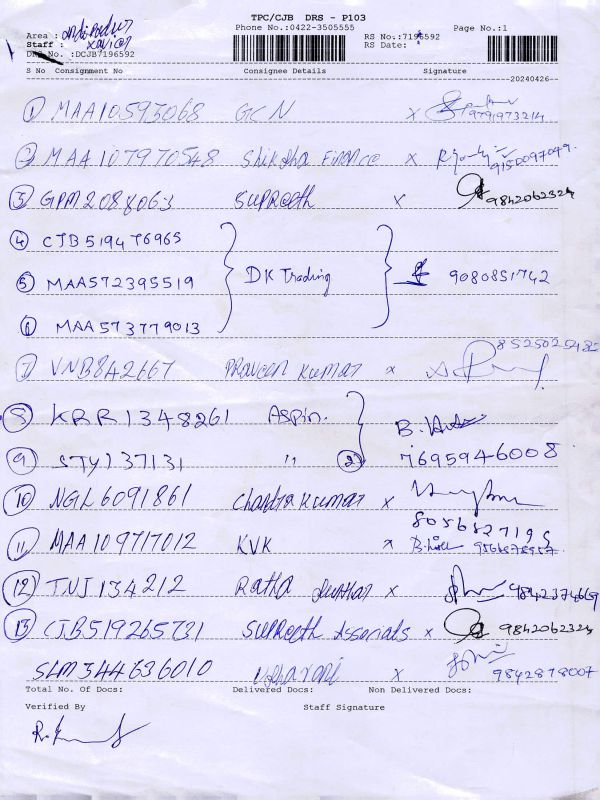 TPC/CJB DRS - P103
Phone No.:0422-3505555
Page No.:1
Area :
Staff : xavier
DRS No. :DCJB7196592
RS No.:7196592
RS Date:
S No Consignment No Consignee Details Signature
20240426
1 MAA10593068 GCN x 9791973214
2 MAA107970548 Shiksha Finance x 9150097049
3 GPM2088063 Supreeth x 9842062324
4 CJB519476965
5 MAA572395519 DK Trading 9080851742
6 MAA573779013
7 VNB842667 Praveen Kumar x 8525025482
8 KRR1348261 Aspin. B.
9 STY137131 " 2 7695946008
10 NGL6091861 Chandra Kumar x
8056827195
11 MAA109717012 KVK x
12 TNJ134212 Ratha x 9842374669
13 CJB519265731 Supreeth Associats x 9842062324
SLM344636010 Usharani x 9842878007
Total No. Of Docs: Delivered Docs: Non Delivered Docs:
Verified By Staff Signature